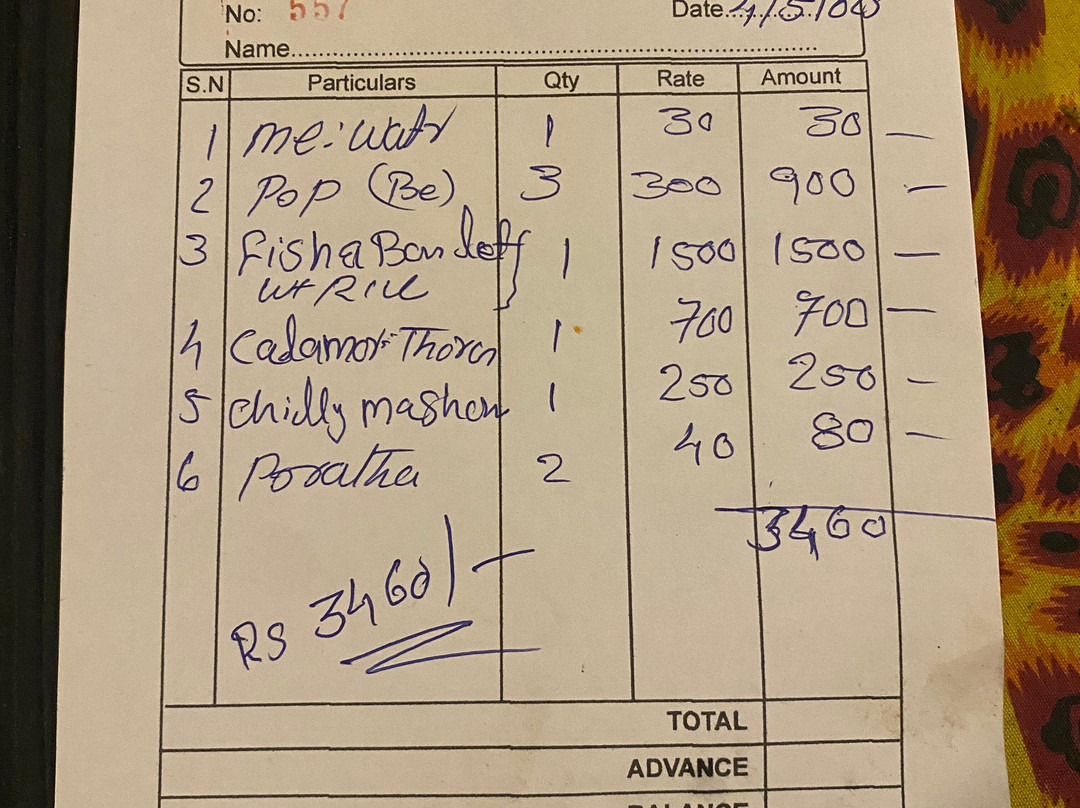 No: 557 Date 4/5/
Name
S.N Particulars Qty Rate Amount
1 me: watr 1 30 30 —
2 Pop (Be) 3 300 900 —
3 fish 1 1500 1500 —
wt Rice
4 Thoren 1 700 700 —
5 chilly 1 250 250 —
6 Poratha 2 40 80 —
3460
RS 3460/-
TOTAL
ADVANCE
BALANCE